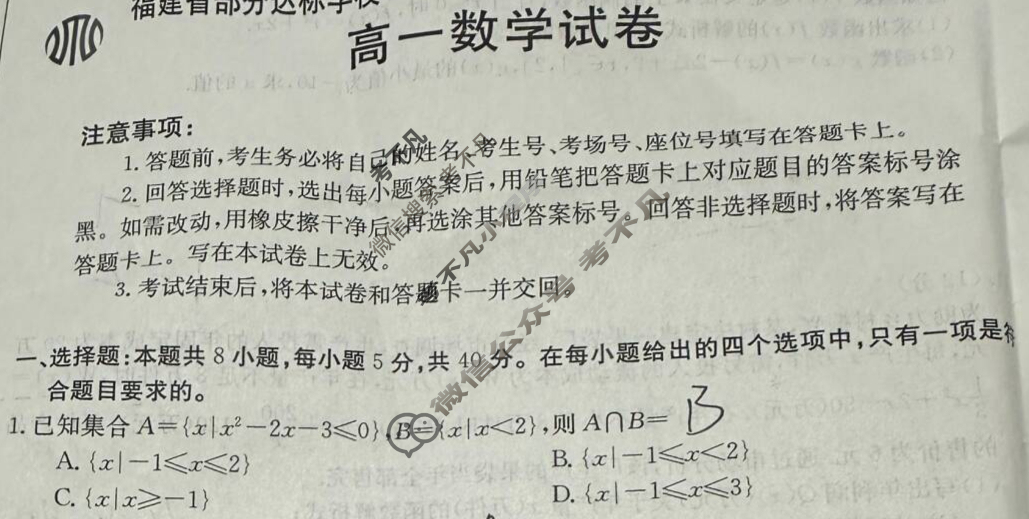 福建省部分达标学校
高一数学试卷
注意事项：
1. 答题前，考生务必将自己的姓名、考生号、考场号、座位号填写在答题卡上。
2. 回答选择题时，选出每小题答案后，用铅笔把答题卡上对应题目的答案标号涂
黑。如需改动，用橡皮擦干净后，再选涂其他答案标号。回答非选择题时，将答案写在
答题卡上。写在本试卷上无效。
3. 考试结束后，将本试卷和答题卡一并交回。
一、选择题：本题共 8 小题，每小题 5 分，共 40 分。在每小题给出的四个选项中，只有一项是符
合题目要求的。
1. 已知集合 A={x|x²-2x-3≤0}，B={x|x<2}，则 A∩B= B
A. {x|-1≤x≤2}
B. {x|-1≤x<2}
C. {x|x≥-1}
D. {x|-1≤x≤3}
微信搜索考不凡
微信公众号 考不凡